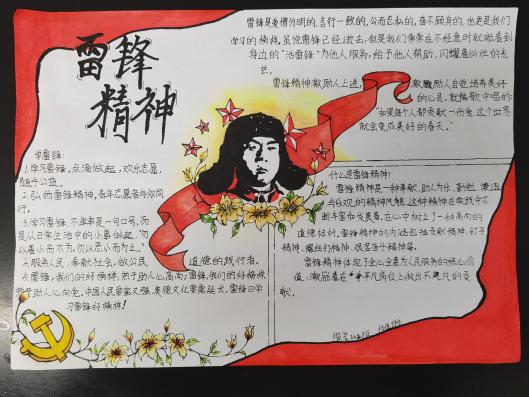 雷锋
精神
雷锋是爱憎分明的,言行一致的,公而忘私的,奋不顾身的,他更是我们
学习的榜样,虽说雷锋已经过去,但是我们常常在不经意时就能看到
身边的"活雷锋"为他人服务,给予他人帮助,闪耀着灿烂的光
芒。
雷锋精神激励人上进,激励人自觉培养美好
的心灵,就像歌中唱的:
"如果每个人都贡献一份爱,这个世界
就会变成美好的春天。"
学雷锋:
1.学习雷锋,点滴做起,欢乐志愿,
随手公益。
2.弘扬雷锋精神,青年志愿者与你同
行。
3.学习雷锋,不单单是一句口号,而
是从日常生活中的小事做起,"勿
以善小而不为,勿以恶小而为之。"
人服务人民,奉献社会,做公民
道德的践行者。
点雷锋,我们的好榜样,热于助人心高高;雷锋,我们的好榜样,
助人心向党,中国人民要富又强,美德文化要常延长,雷锋日学
习雷锋好榜样!
什么是雷锋精神:
雷锋精神是一种奉献、助人为乐、勤勉、谦逊
与乐观的精神风貌,这种精神在实践中不
断丰富和发展,在心中树立了一种高尚的
道德标杆,雷锋精神的内涵包括奉献精神、钉子
精神、螺丝钉精神、艰苦奋斗精神等。
雷锋精神体现了全心全意为人民服务的核心价
值,激励着在平凡岗位上做出不平凡的贡
献。